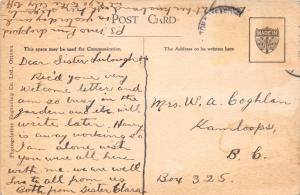 POST CARD
MADE IN
This space may be used for Communication.
The Address to be written here
Photogelatine Engraving Co. Ltd., Ottawa
Dear Sister
Rec'd your very
welcome letters and
am so busy in the
garden and etc will
write later. Harry
is away working so
I am alone wish
you were all here
with me. we are well
to all from us
Both from Sister Clara
Mrs. W. A. Coghlan
Kamloops,
B. C.
Box 325.